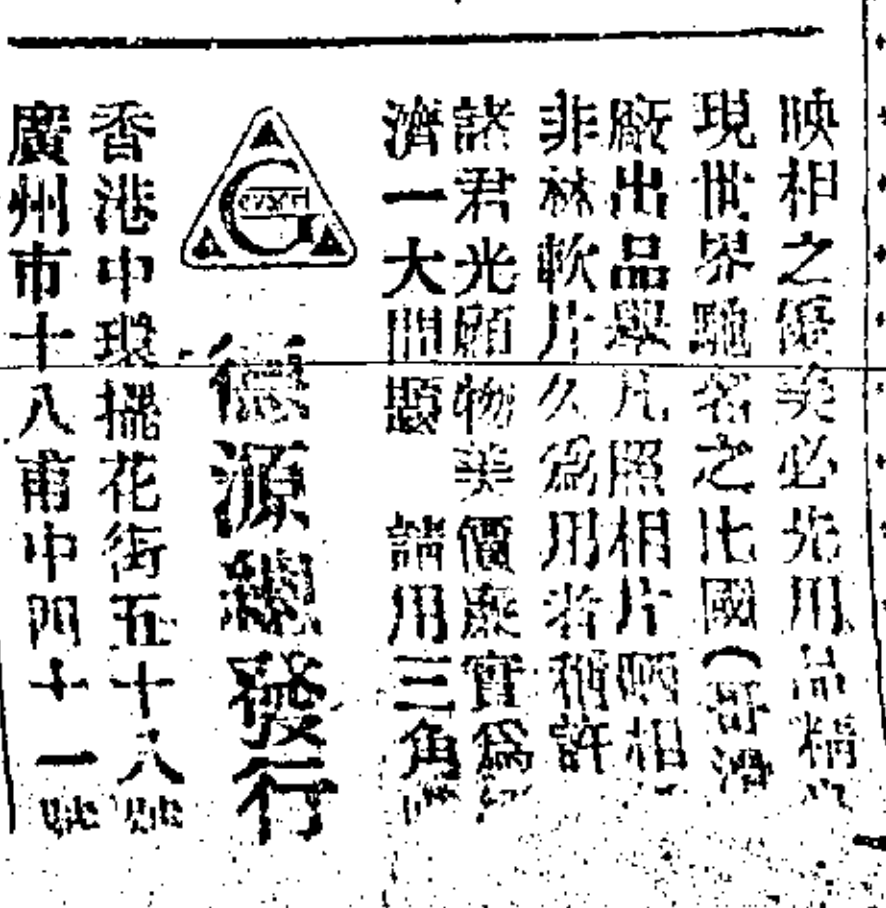 映相之優美必先用品精
現世界馳名之比國（哥
廠出品舉凡照相片晒相
非林軟片久爲用者稱許
諸君光顧物美價廉實爲
濟一大問題 請用三角
GEVAERT
德源總發行
香港中環擺花街五十八號
廣州市十八甫中四十一號